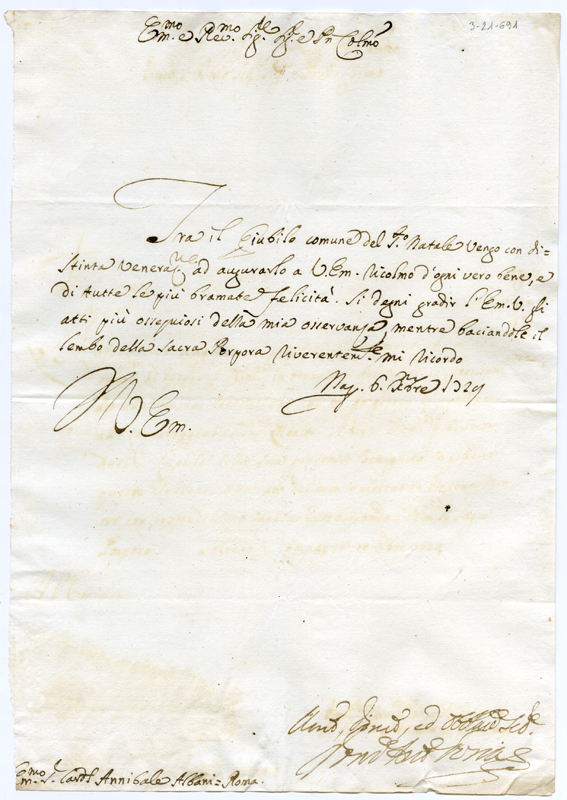 3-21-691
Em.mo e Rev.mo Sig.re Sig.re e Pn Colmo
Tra il Giubilo comune del S.to Natale vengo con di-
stinta venera.ne ad augurarlo a V. Em. Ricolmo d'ogni vero bene, e
di tutte le più bramate felicità. Si degni gradir l'Em. V. gli
atti più ossequiosi della mia osservanza, mentre baciandole il
lembo della Sacra Porpora Riverentem.te mi Ricordo
Nap. 6. Xbre 1729
V. Em.
ed
Em.mo S.r Card.l Annibale Albani = Roma.